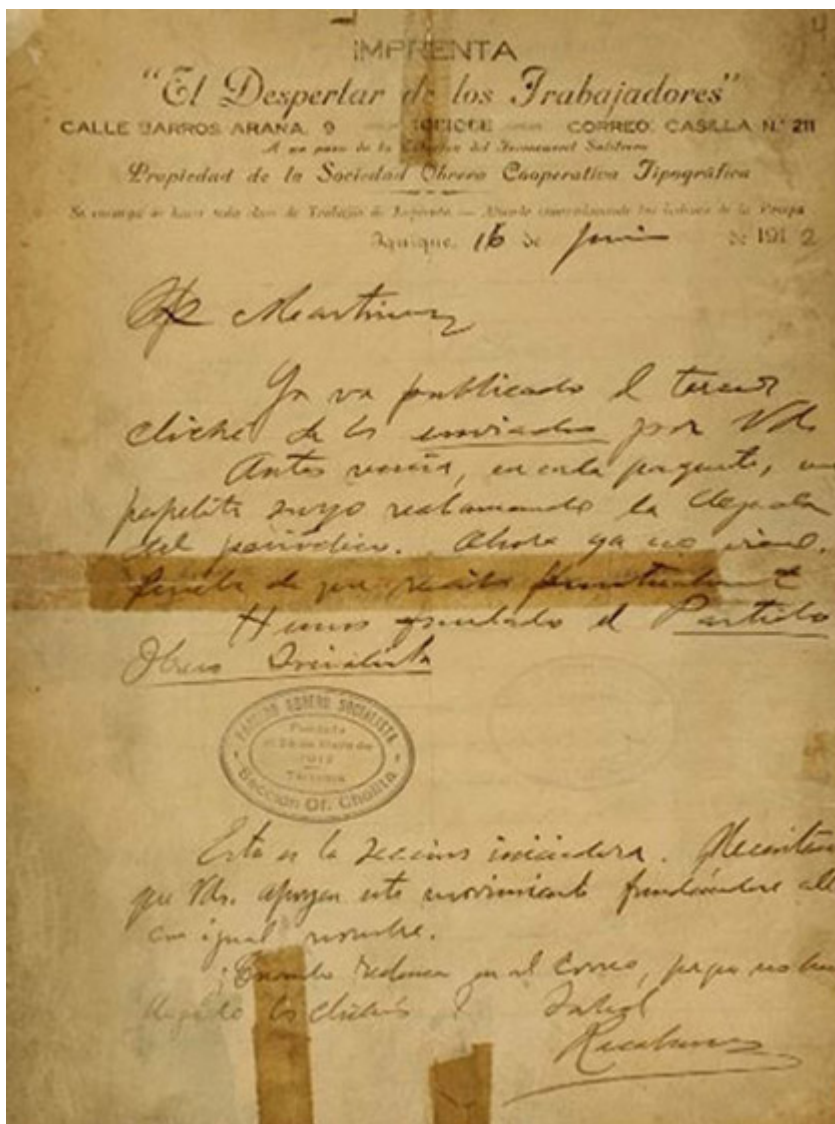 4
IMPRENTA
"El Despertar de los Trabajadores"
CALLE BARROS ARANA, 9 IQUIQUE CORREO: CASILLA N.º 211
A un paso de la Estación del Ferrocarril Salitrero
Propiedad de la Sociedad Obrera Cooperativa Tipográfica
Se encarga de hacer toda clase de Trabajos de Imprenta — Atiende las órdenes de la Pampa
Iquique, 16 de Junio de 1912
Martinez
Ya va publicado el tercer
cliché de los enviados por Vds
Antes venía, en cada paquete, un
papelito suyo reclamando la llegada
del periódico. Ahora ya no viene.
de que recibe puntualmente
Hemos fundado el Partido
Obrero Socialista
PARTIDO OBRERO SOCIALISTA
Fundado
el de Mayo de
1912
Sección Of. Cholita
Esta es la sección iniciadora. Necesitamos
que Vds. apoyen este movimiento fundándose allá
con igual nombre.
¿Cuándo en el Correo, porque no han
llegado los clichés? Salud
Recabarren